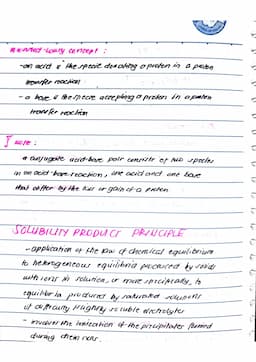 Bronsted-Lowry concept :
- an acid is the specie donating a proton in a proton
transfer reaction
- a base is the specie accepting a proton in a proton
transfer reaction
Note :
a conjugate acid-base pair consists of two species
in an acid-base reaction, one acid and one base
that differ by the loss or gain of a proton
SOLUBILITY PRODUCT PRINCIPLE
- application of the law of chemical equilibrium
to heterogeneous equilibria produced by solids
with ions in solution, or more specifically, to
equilibria produced by saturated solutions
of difficulty slightly soluble electrolytes
- involves the ionization of the precipitates formed
during chem rxns.